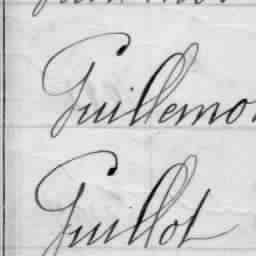 Guillemo
Guillot